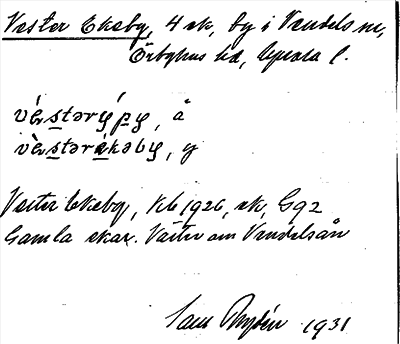 Vester Ekeby, 4 sk, by i Vendels sn,
Örbyhus hd, Uppsala l.
vèstərÿpy, å
vèstərákəby, y
Väster Ekeby, Kb 1926, sk, Gg2
Gamla skar. Väster om Vendelsån
1931